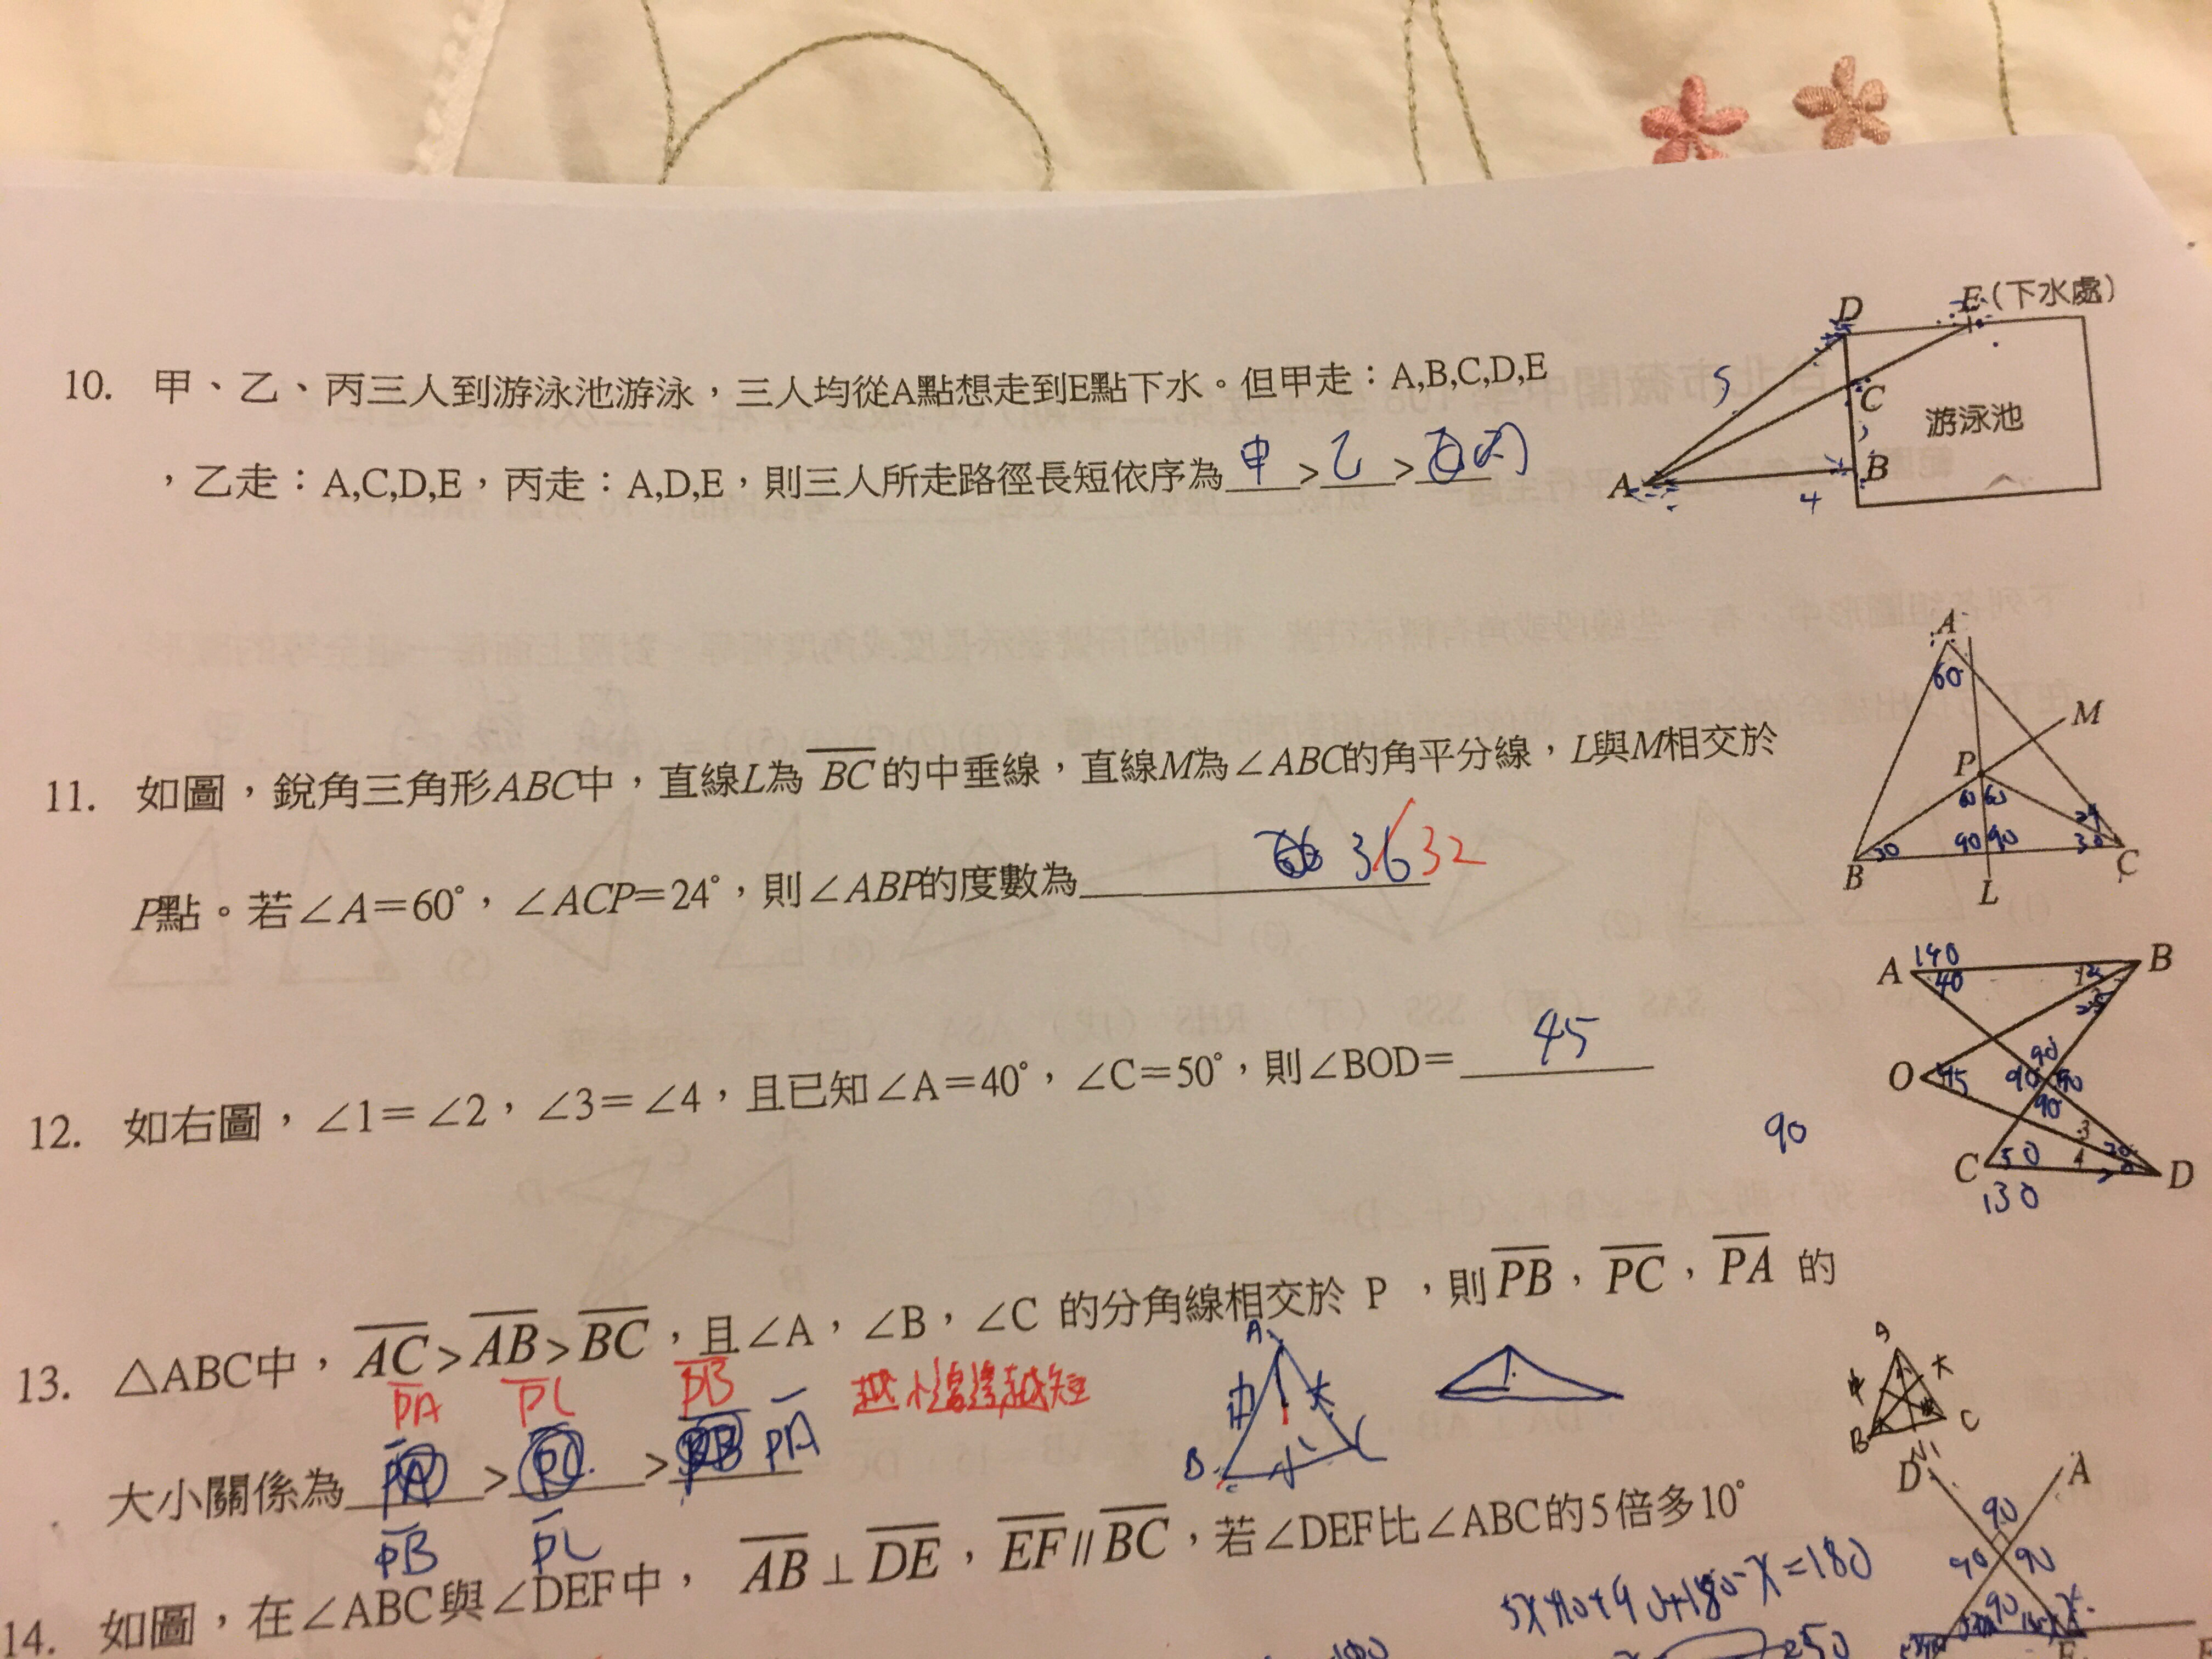 10. 甲、乙、丙三人到游泳池游泳，三人均從A點想走到E點下水。但甲走：A,B,C,D,E
，乙走：A,C,D,E，丙走：A,D,E，則三人所走路徑長短依序為 甲 > 乙 > 丙
D E (下水處)
5
C 游泳池
A B
4
11. 如圖，銳角三角形ABC中，直線L為 BC 的中垂線，直線M為∠ABC的角平分線，L與M相交於
P點。若∠A=60°，∠ACP=24°，則∠ABP的度數為 36 32
A
60
M
P
60 60 24
30 90 90 30
B L C
12. 如右圖，∠1=∠2，∠3=∠4，且已知∠A=40°，∠C=50°，則∠BOD= 45
90
A 140 B
40
25
90
O 45 90 90
90
3
C 50 4 D
130
13. △ABC中，AC > AB > BC，且∠A，∠B，∠C 的分角線相交於 P ，則 PB，PC，PA 的
PA PC PB
大小關係為 PA > PC > PB PA
PB PC
A
中 大
B 小 C
A
中 大
B 小 C
14. 如圖，在∠ABC與∠DEF中， AB⊥DE，EF//BC，若∠DEF比∠ABC的5倍多10°
5x+10+90+180-x=180
D A
90
90 90
90
E F